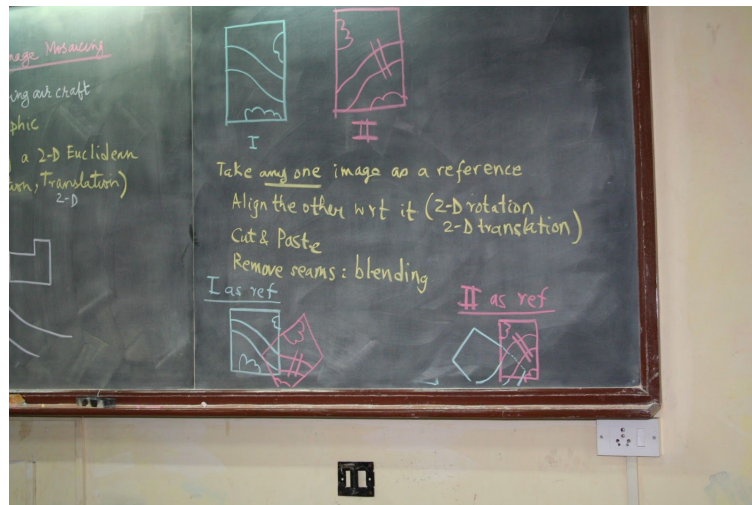 mage Mosaicing
ing air craft
phic
a 2-D Euclidean
ion, Translation)
2-D
I
II
Take any one image as a reference
Align the other wrt it (2-D rotation
2-D translation)
Cut & Paste
Remove seams: blending
I as ref
II as ref